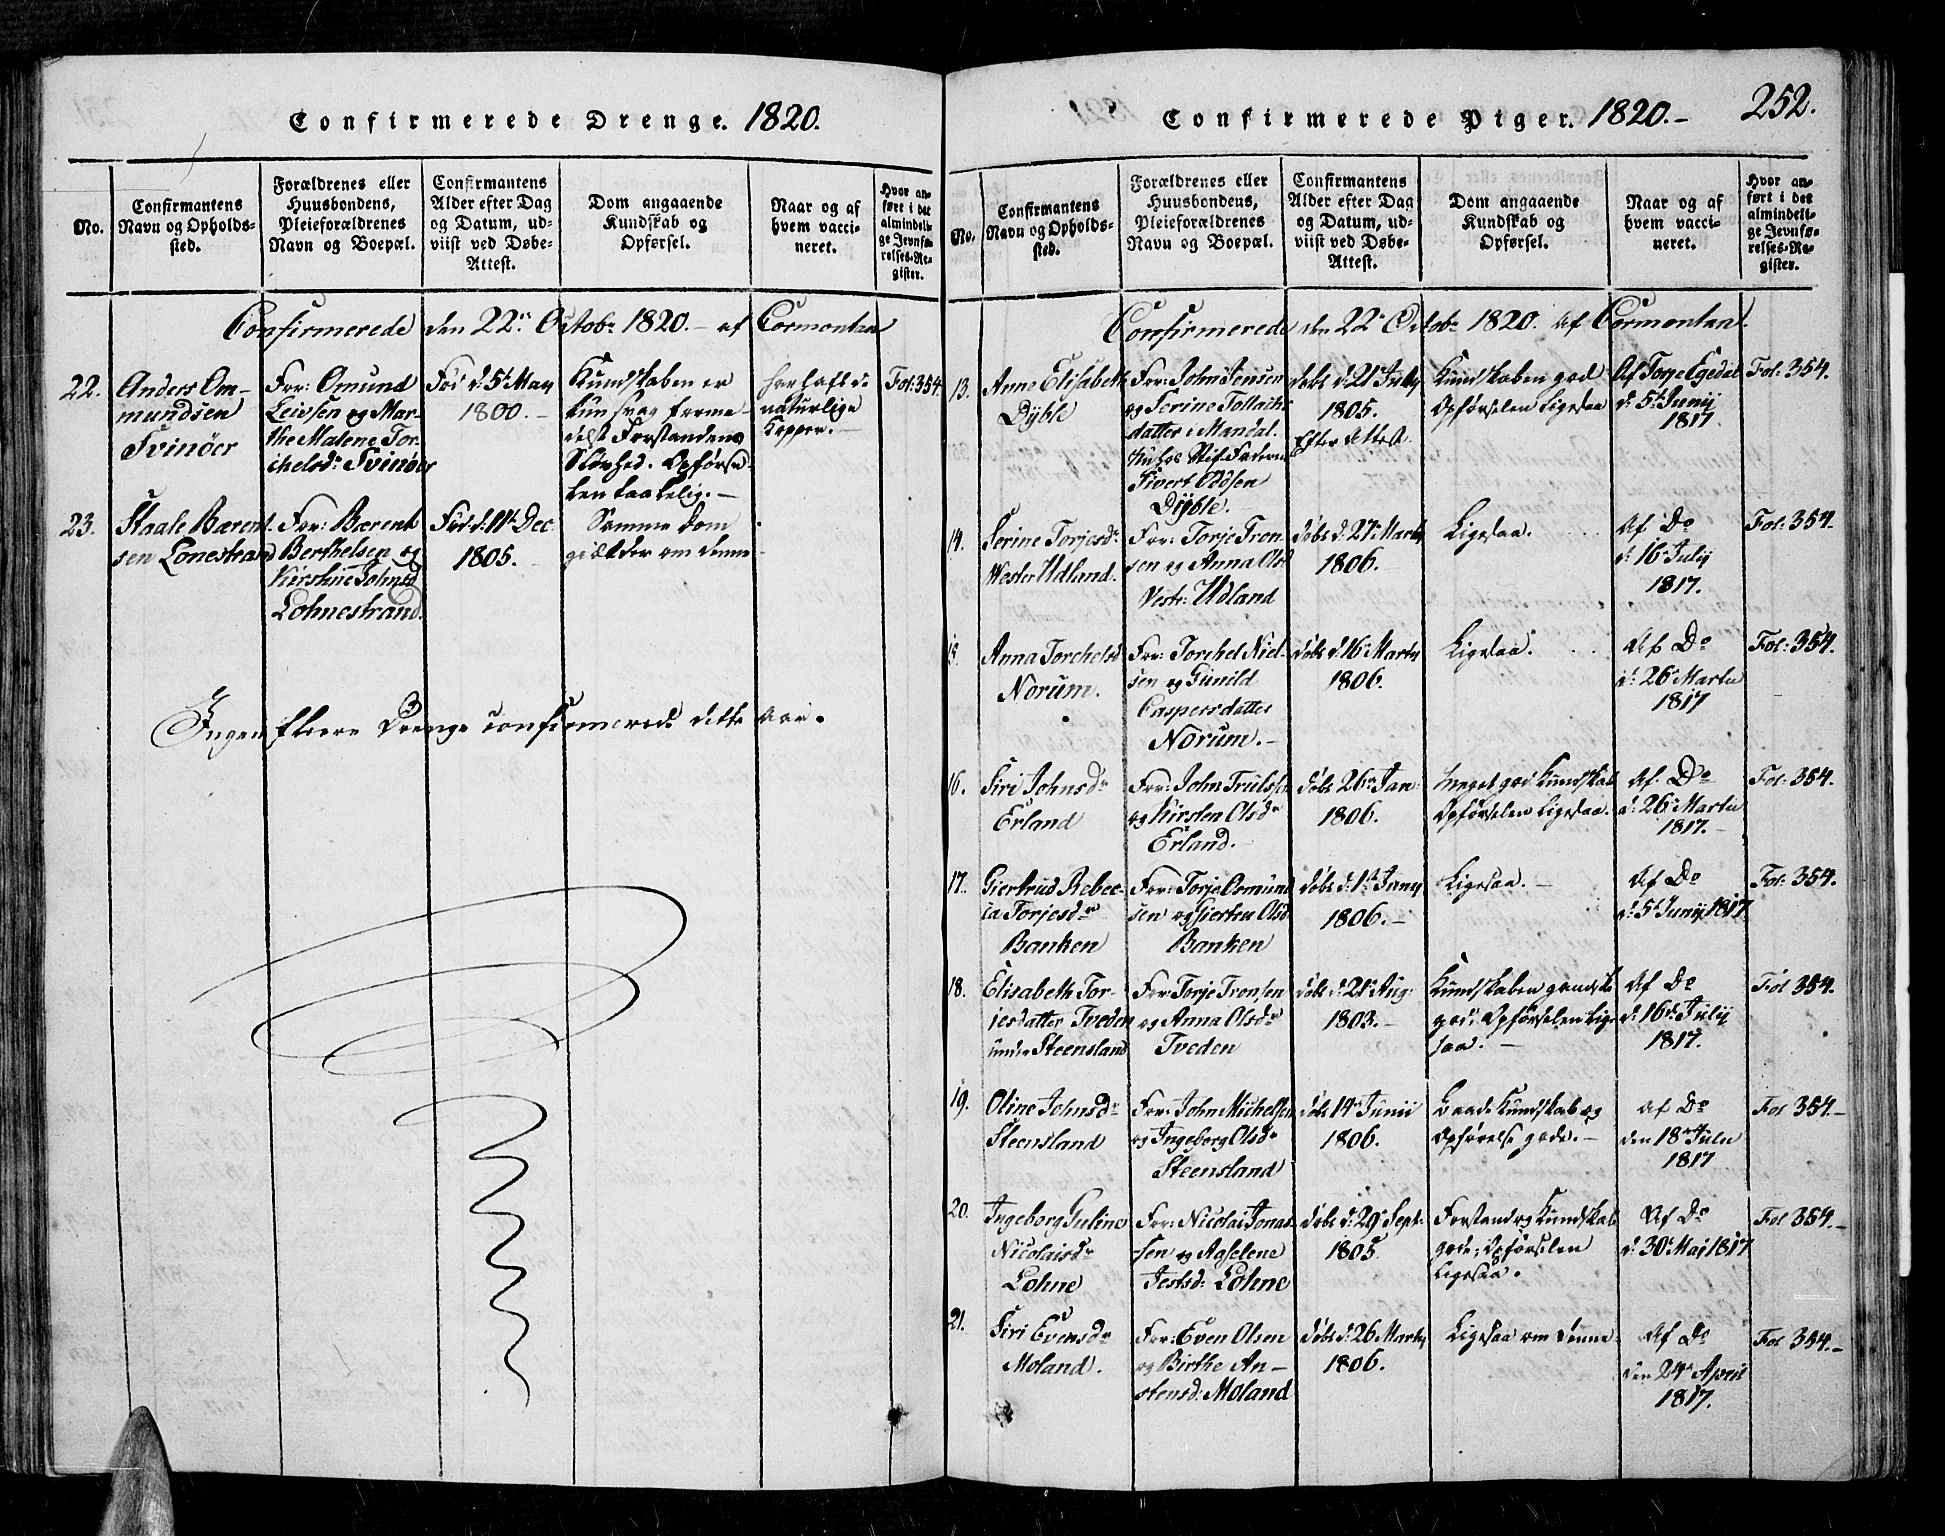 Confirmerede Drenge. 1820.
No.
Confirmantens
Navn og Opholds-
sted.
Forældrenes eller
Huusbondens,
Pleieforældrenes
Navn og Boepæl.
Confirmantens
Alder efter Dag
og Datum, ud-
viist ved Døbe-
Attest.
Dom angaaende
Kundskab og
Opførsel.
Naar og af
hvem vacci-
neret.
Hvor an-
ført i det
almindeli-
ge Jevnfø-
relses-Re-
gister.
Confirmerede den 22de Octobr 1820. - af Cormontan
22.
Anders Om-
mundsen
Svinöer
Forr: Omund
Leivsen og Mar-
the Malene Tor-
chelsdr Svinöer
Fød d: 5t May
1800. -
Kundskaben er
kun svag forme-
delst Forstandens
Slövhed. Opförse-
len taalelig. -
har haft de
naturlige
Kopper. -
Fol: 354.
23.
Staale Bærent-
sen Lonestrand
Forr: Bærent
Berthelsen og
Kirstine Johnsd
Lohnestrand.
Fød d: 11t Dec
1805. -
Samme Dom
gielder om denne
Ingen fleere Drenge confirmerede dette Aar.
Confirmerede Piger. 1820. -
252.
No.
Confirmantens
Navn og Opholds-
sted.
Forældrenes eller
Huusbondens,
Pleieforældrenes
Navn og Boepæl.
Confirmantens
Alder efter Dag
og Datum, ud-
viist ved Døbe-
Attest.
Dom angaaende
Kundskab og
Opførsel.
Naar og af
hvem vacci-
neret.
Hvor an-
ført i det
almindeli-
ge Jevnfø-
relses-Re-
gister.
Confirmerede den 22de Octobr 1820. af Cormontan.
13.
Anne Elisabeth
Dÿble
Forr: John Jensen
og Serine Tollachs
datter i Mandal.
Stif-Faderen
Sivert Eddsen
Dÿble.
döbt d: 21de July
1805.
Efter Attest.
Kundskaben god
Opförselen Ligesaa
Af Torje Egedal
d: 5t Junij
1817
Fol. 354.
14.
Serine Torjesdr
Wester Udland.
Forr: Torje Tron-
sen og Anna Olsd
Vestr: Udland
döbt d: 27de Marty
1806. -
Ligesaa.
Af Do
d: 16 July
1817.
Fol: 354.
15.
Anna Torchelsd
Norum.
Forr: Torchel Niel-
sen og Gunild
Caspersdatter
Norum. -
döbt d: 16de Marty
1806.
Ligesaa.
Af Do
d: 26de Martii
1817
Fol: 354.
16.
Siri Johnsdr
Erland
Forr: John Trulssen
og Kirsten Olsdr
Erland. -
döbt 26de Jan:
1806.
Meget god Kundskab
Opförselen Ligesaa.
Af Do
d: 26de Martii
1817. -
Fol: 354.
17.
Giertrud Rebec-
ca Torjesdr
Banken
Forr: Torje Osmund
sen og Gierten Olsd
Banken
döbt d: 1st Juny
1806. -
Ligesaa. -
Af Do
d: 5t Junij 1817
Fol: 354.
18.
Elisabeth Tor-
jesdatter Tveden
under Steensland
Forr: Torje Tronsen
og Anna Olsdr
Tveden
döbt d: 21de Aug:
1803. -
Kundskaben gandske
god; Opförselen Lige
saa. -
Af Do
d: 16de Julij
1817.
Fol 354.
19.
Oline Johnsdr
Steensland
Forr: John Michelsen
og Ingeborg Olsdr
Steensland
döbt 14de Junii
1806.
Baade Kundskab og
Opförelse gode. -
af Do
den 18de July
1817
Fol 354. -
20.
Ingeborg Guline
Nicolaisdr
Lohne
Forr: Nicolai Jonas-
sen og Agselene
Jestsd: Lohne
döbt d: 29de Sept:
1805.
Forstand og Kundskab
gode; Opförselen
Ligesaa.
Af Do
d: 30de Mai 1817
Fol 354. -
21.
Siri Evensdr
Moland.
Forr: Even Olsen
og Birthe An-
stensd: Moland
döbt d: 26 Marty
1806.
Ligesaa om denne
Af Do
den 24de April
1817.
Fol 354. -